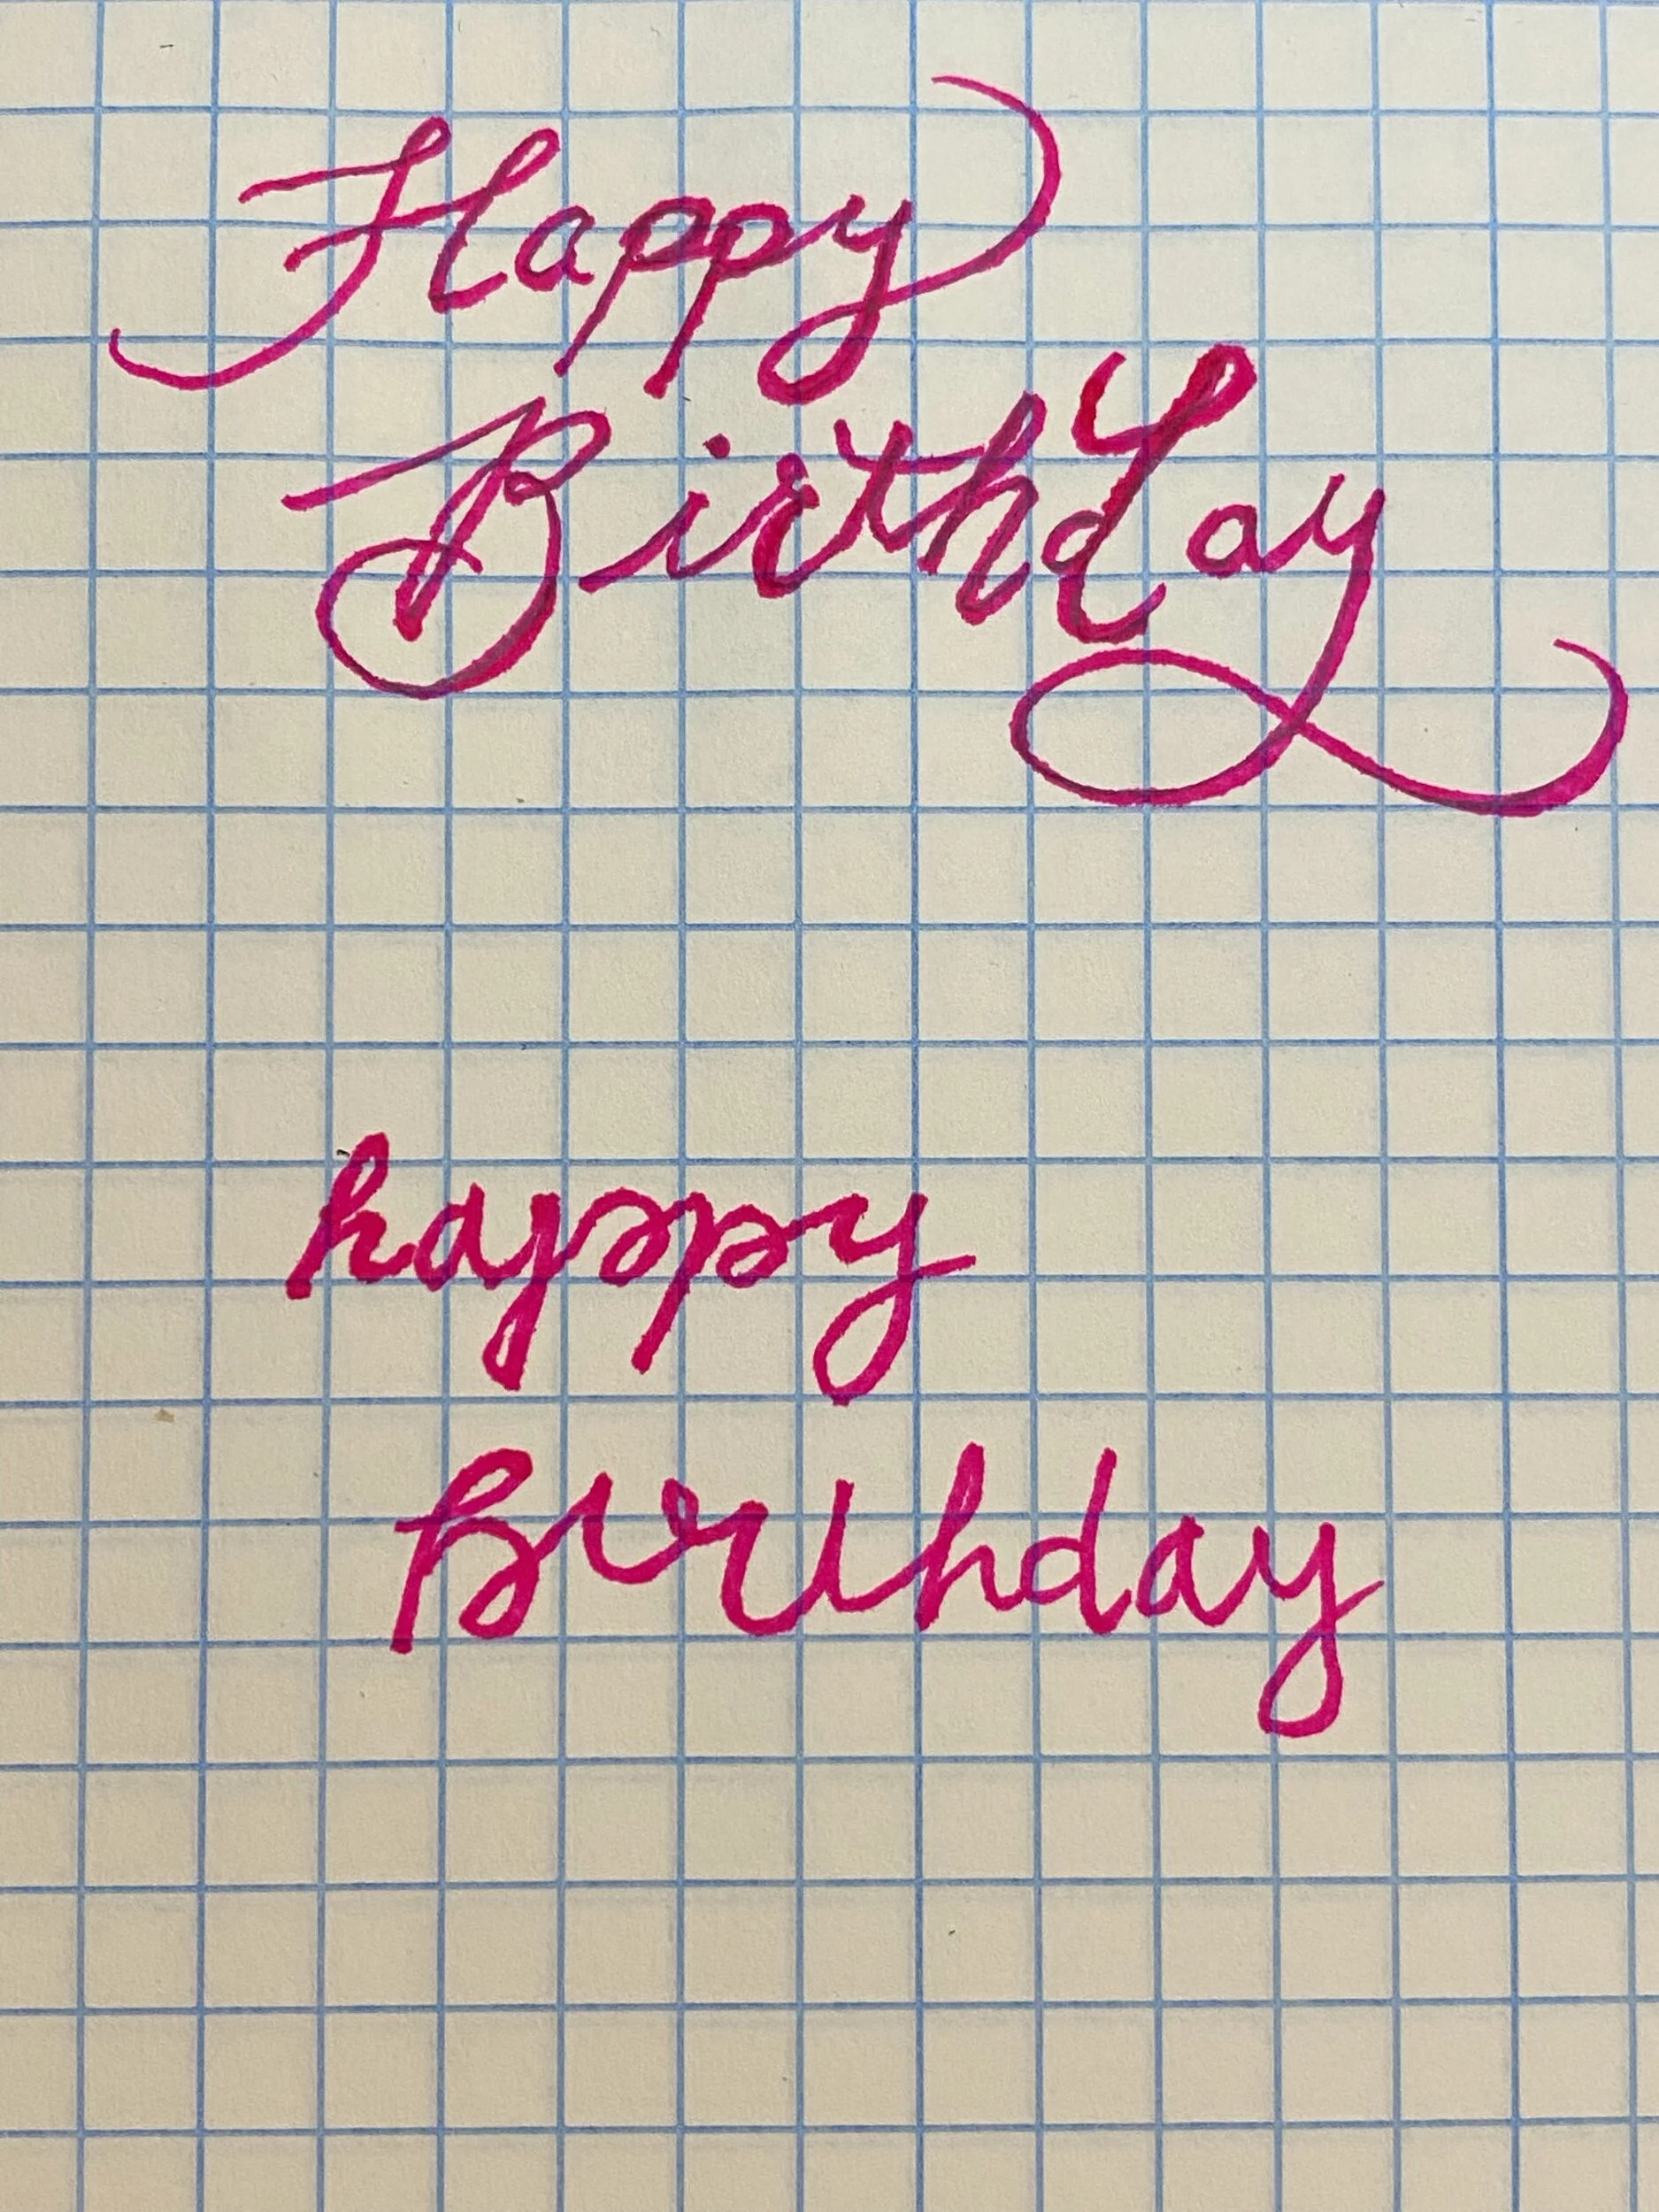 Happy
Birthday
happy
Birthday